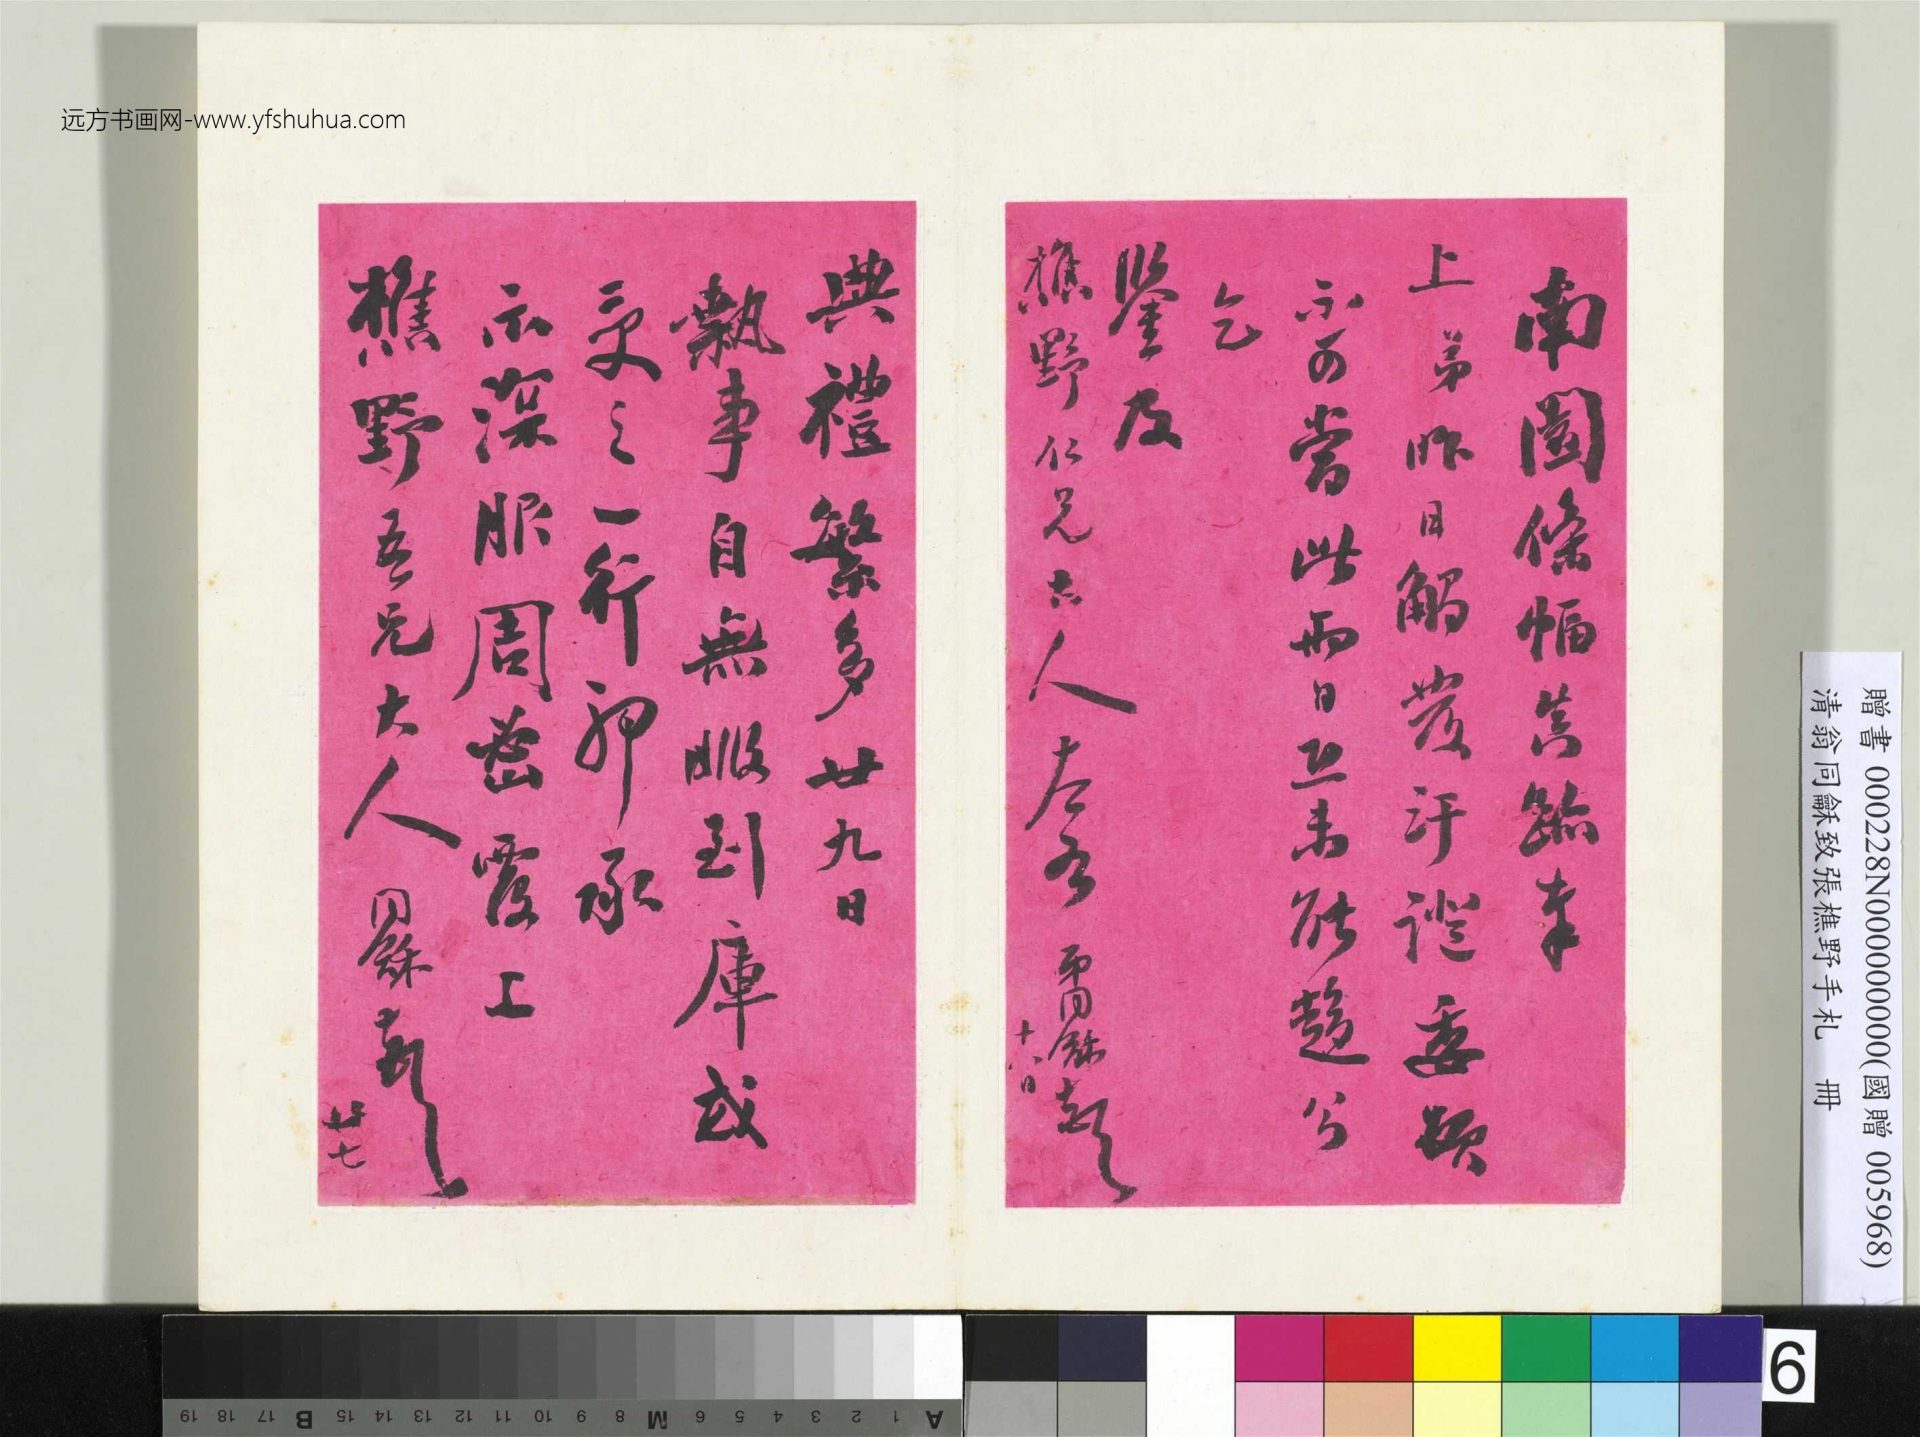 远方书画网-www.yfshuhua.com
南園條幅真跡奉
上弟昨日觸發汗證委頓
不可當此兩日恐未能趨公
乞
鑒及
樵野仁兄大人左右 弟同龢頓首
十八日
典禮繁多廿九日
執事自無暇到庫或
交之一行耶承
示深服周密覆上
樵野吾兄大人
同龢頓首
廿七
贈書 000228N000000000(國贈 005968)
清翁同龢致張樵野手札 冊
A 1 2 3 4 5 6 M 8 9 10 11 12 13 14 15 B 17 18 19
6